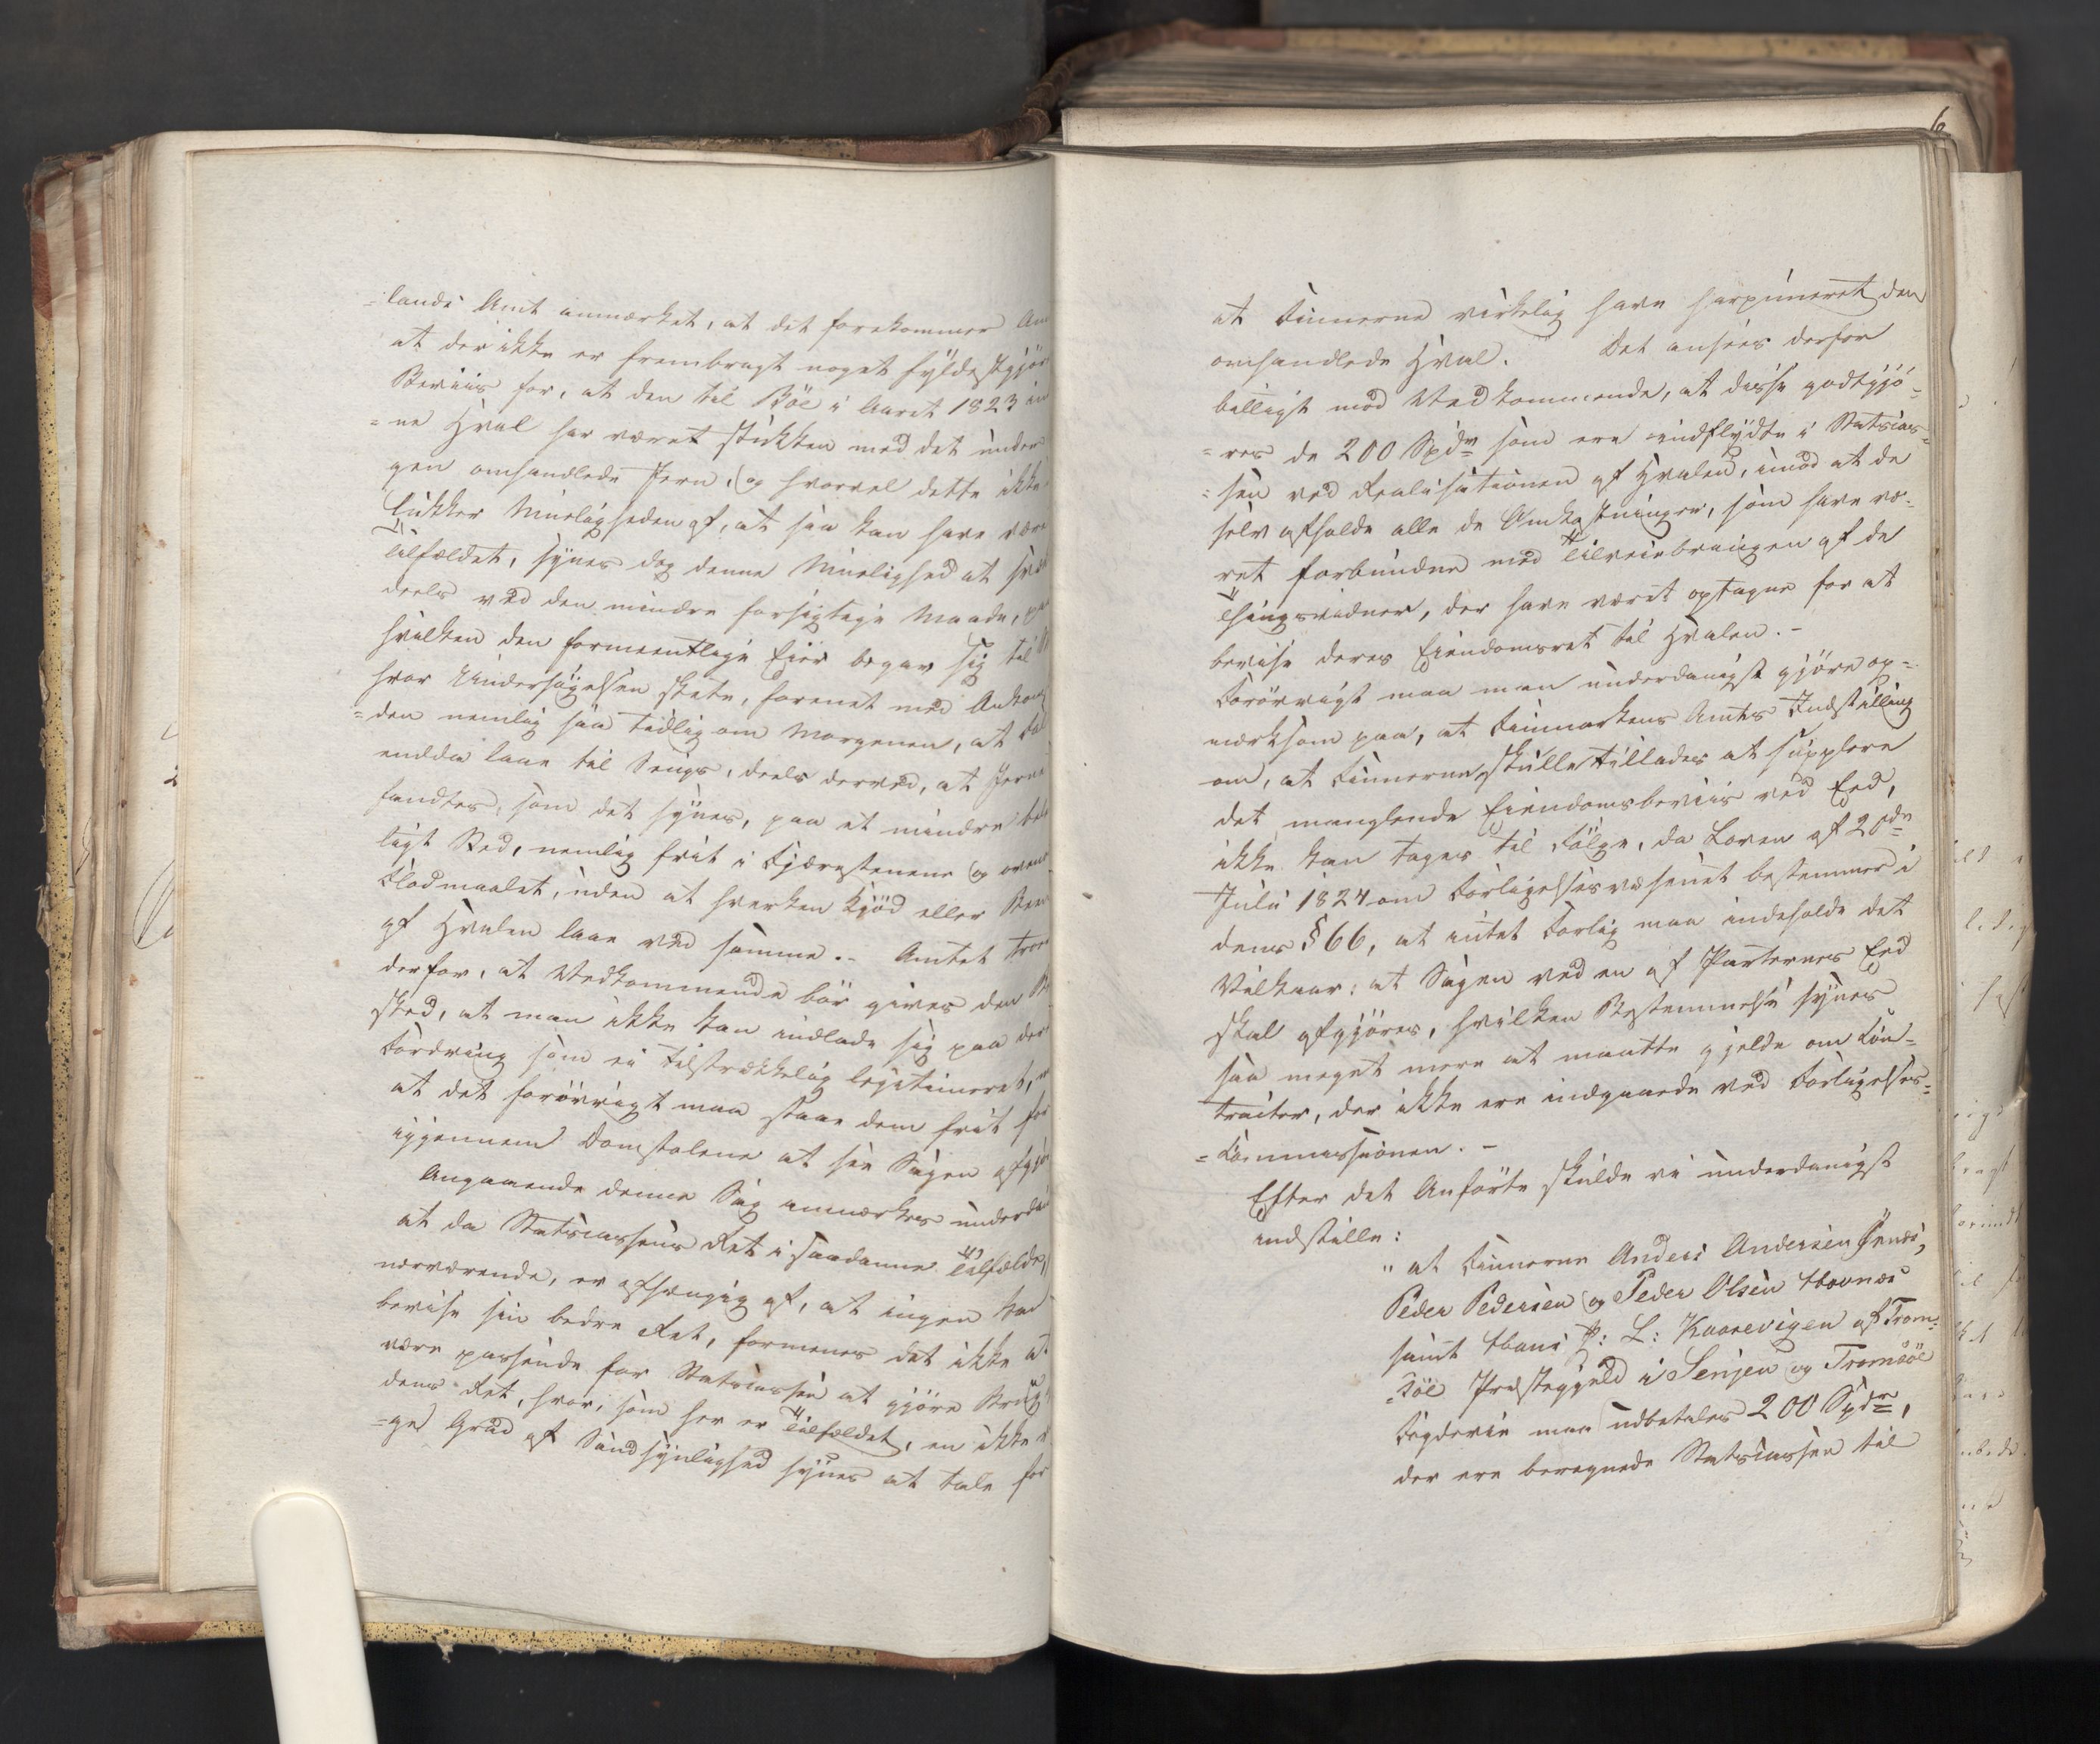 =lands Amt anmærket, at det forekommer Am
at der ikke er frembragt noget fyldestgjör
Beviis for, at den til Böe i Aaret 1823 in
=ne Hval har været stukken med det under
gen omhandlede Jern, og hvorvel dette ikke
lukker Mueligheden af, at saa kan have være
Tilfældet, synes dog denne Muelighed at svæ
deels ved den mindre forsigtige Maade, 
hvilken den formeentlige Eier begav sig til
hvor Undersögelsen skete, forenet med Ankom
=den nemlig saa tidlig om Morgenen, at Fol
endda laae til Sengs, deels derved, at Jerne
fandtes, som det synes, paa et mindre tro
ligt Sted, nemlig frit i Fjærestenene og oven
Flodmaalet, uden at hverken Kjöd eller Been
af Hvalen laae ved samme.- Amtet troer
derfor, at Vedkommende bör gives den Be
sked, at man ikke kan indlade sig paa der
Fordring som ei tilstrækkelig legitimeret,
at det forövrigt maa staae dem frit for
igjennem Domstolene at see Sagen afgjör
Angaaende denne Sag anmærkes underda
at da Statscassens Ret i saadanne Tilfælde,
nærværende, er afhængig af, at ingen kan
bevise sin bedre Ret, formenes det ikke at
være passende for Statscassen at gjöre Brug
dens Ret, hvor, som her er Tilfældet, en ikke
=ge Grad af Sandsynlighed synes at tale for
6
at Finnerne virkelig have harpuneret den
omhandlede Hval. Det ansees derfor
billigt mod Vedkommende, at disse godtgjö-
=res de 200 Spdr som ere indflydte i Statscas=
=sen ved Realisationen af Hvalen, imod at de
selv afholde alle de Omkostninger, som have væ-
ret forbundne med Tilveiebringen af de
Thingsvidner, der have været optagne for at
bevise deres Eiendomsret til Hvalen.-
Forövrigt maa man underdanigst gjöre op=
mærksom paa, at Finmarkens Amts Indstilling
om, at Finnerne skulle tillades at supplere
det manglende Eiendomsbeviis ved Eed,
ikke kan tages til Fölge, da Loven af 20de
Juli 1824 om Forligelsesvæsenet bestemmer i
dens § 66, at intet Forlig maa indeholde det
Vilkaar: at Sagen ved en af Parternes Eed
skal afgjöres, hvilken Bestemmelse synes
saa meget mere at maatte gjelde om Con=
tracter, der ikke ere indgaaede ved Forligelses=
=Commissionen.-
Efter det Anförte skulde vi underdanigst
indstille:
"at Finnerne Anders Andersen
Peder Pedersen og Peder Olsen Havnæs
samt Hans P: L: Kaarevigen af Trom=
=söe Præstegjeld i Senjen og Tromsöe
Fogderie maa udbetales 200 Spdr,
der ere beregnede Statscassen til